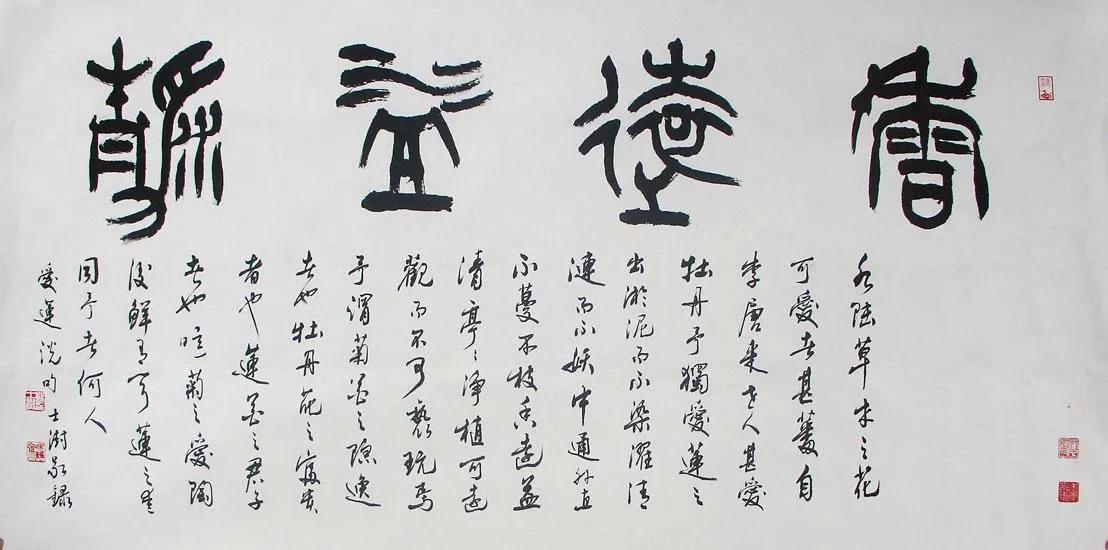 香遠益靜
水陸草木之花
可愛者甚蕃自
李唐來世人甚愛
牡丹予獨愛蓮之
出淤泥而不染濯清
漣而不妖中通外直
不蔓不枝香遠益
清亭〻淨植可遠
觀而不可褻玩焉
予謂菊花之隱逸
者也牡丹花之富貴
者也蓮花之君子
者也噫菊之愛陶
後鮮有聞蓮之愛
同予者何人
愛蓮說句 士澍敬錄